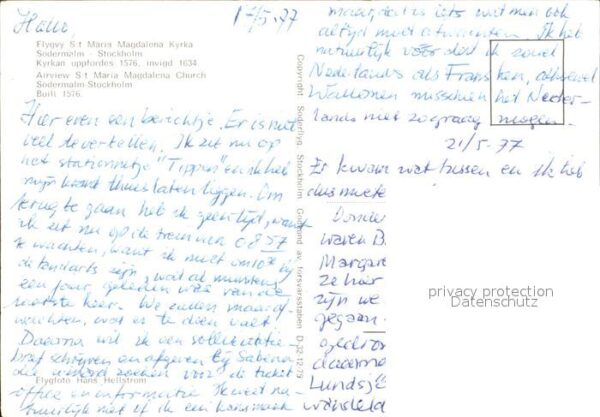 Hallo,
17/5-77
Flygvy S:t Maria Magdalena Kyrka
Södermalm - Stockholm
Kyrkan uppfördes 1576, invigd 1634
Airview S:t Maria Magdalena Church
Södermalm-Stockholm
Built 1576.
Hier even een berichtje. Er is niet
veel te vertellen. Ik zit nu op
het stationnetje "Tippen" en ik heb
mijn thuis laten liggen. Om
terug te gaan heb ik geen tijd, want
ik zit nu op de trein van 0857
te wachten, want ik moet om 10 bij
de tandarts zijn,
een jaar geleden was van de
laatste keer. We zullen maar
wachten, wat er te doen valt.
Daarna wil ik een sollicitatie-
brief schrijven en afgeven bij Sabena
die zoeken voor de ticket
Flygfoto Hans Hellström
office en informatie. Ik weet na-
tuurlijk niet of ik een kans maak
Copyright Söderliyg. Stockholm Godkänd av försvarsstaben D-32-12-79
maar, dat is iets wat men ook
altijd moet afwachten. Ik heb
natuurlijk vóór dat ik zowel
Nederlands als Frans ken, alhoewel
Walen misschien het Neder-
lands niet zo graag mogen.
21/5-77
Er kwam wat tussen en ik heb
dus moete
Donder
waren B.
Margar
ze hier
zijn we
gegaan.
gedron
daarna
Lundsj
wandela
privacy protection
Datenschutz